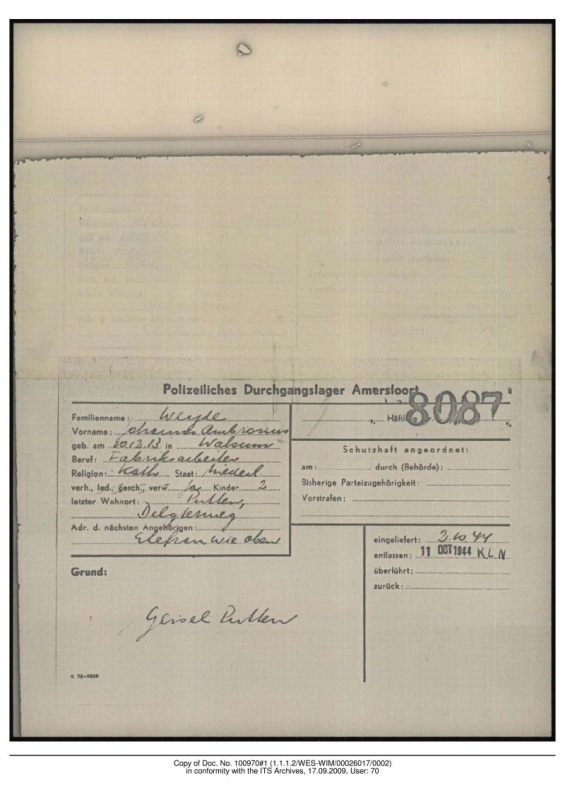 Polizeiliches Durchgangslager Amersfoort
8087
Familienname: Weyde
Vorname: Ambrosius
geb. am 10.12.13 in Walsum
Beruf: Fabriksarbeiter
Religion: Kath Staat: Niederl.
verh., led., gesch., verw. Kinder 2
letzter Wohnort: Putten,
Adr. d. nächsten Angehörigen:
wie oben
Schutzhaft angeordnet:
am: durch (Behörde):
Bisherige Parteizugehörigkeit:
Vorstrafen:
eingeliefert: 2.10.44
entlassen: 11 OCT 1944 K L N
überführt:
zurück:
Grund:
Geisel Putten
Copy of Doc. No. 100970#1 (1.1.1.2/WES-WIM/00026017/0002)
in conformity with the ITS Archives, 17.09.2009, User: 70